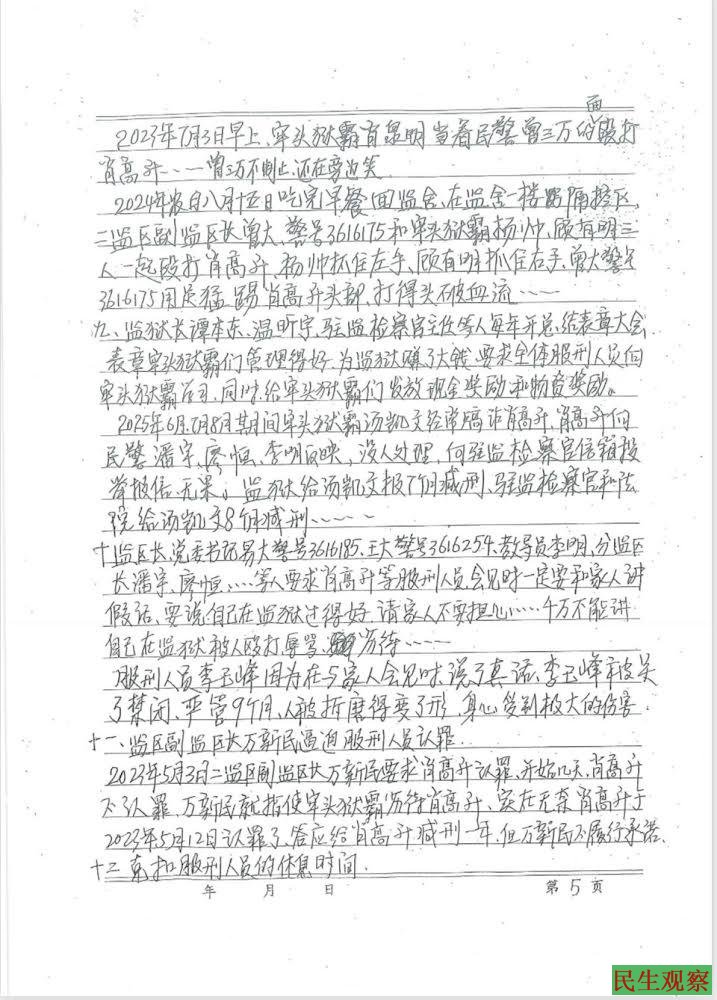 2023年7月3日早上、牢头狱霸肖显明当着民警曾三万的面殴打
肖高升……曾三万不制止、还在旁边笑.
2024年农自八月十五日吃完早餐回监舍、在监舍一楼隔控区、
二监区副监区长曾大、警号3616175和牢头狱霸杨帅、顾有明三
人一起殴打肖高升、杨帅抓住左手、顾有明抓住右手、曾大警号
3616175用足猛踢肖高升头部、打得头破血流……
九、监狱长谭本东、温昕宇、驻监检察官主任等人每年开总结表章大会
表章牢头狱霸们管理得好、为监狱赚了大钱、要求全体服刑人员向
牢头狱霸学习、同时、给牢头狱霸们发放现金奖励和物资奖励。
2025年6月、7月8月其期间牢头狱霸汤凯文经常搞诈肖高升、肖高升向
民警潘宇、廖恒、李明反映、没人处理、向驻监检察官信箱投
举报信、无果。监狱给汤凯文报7个月减刑、驻监检察官和法
院给汤凯文8个月减刑……
十、监区长、党委书记易大警号3616185、王大警号3616254、教导员李明、分监区
长潘宇、廖恒、……等人要求肖高升等服刑人员、会见时一定要和家人讲
假话、要说自己在监狱过得好、请家人不要担心……千万不能讲
自己在监狱被人殴打、辱骂、劳待……
服刑人员李玉峰因为在与家人会见时、说了真话、李玉峰被关
了禁闭、严管9个月、人被折磨得变了形、身心受到极大的伤害.
十一、监区副监区长万新民逼迫服刑人员认罪.
2023年5月3日二监区副监区长万新民要求肖高升认罪、开始几天、肖高升
不认罪、万新民就指使牢头狱霸劳待肖高升、实在无奈肖高升于
2023年5月12日认罪了、答应给肖高升减刑一年、但万新民不履行承诺.
十二、克扣服刑人员的休息时间.
年 月 日 第5页
民生观察